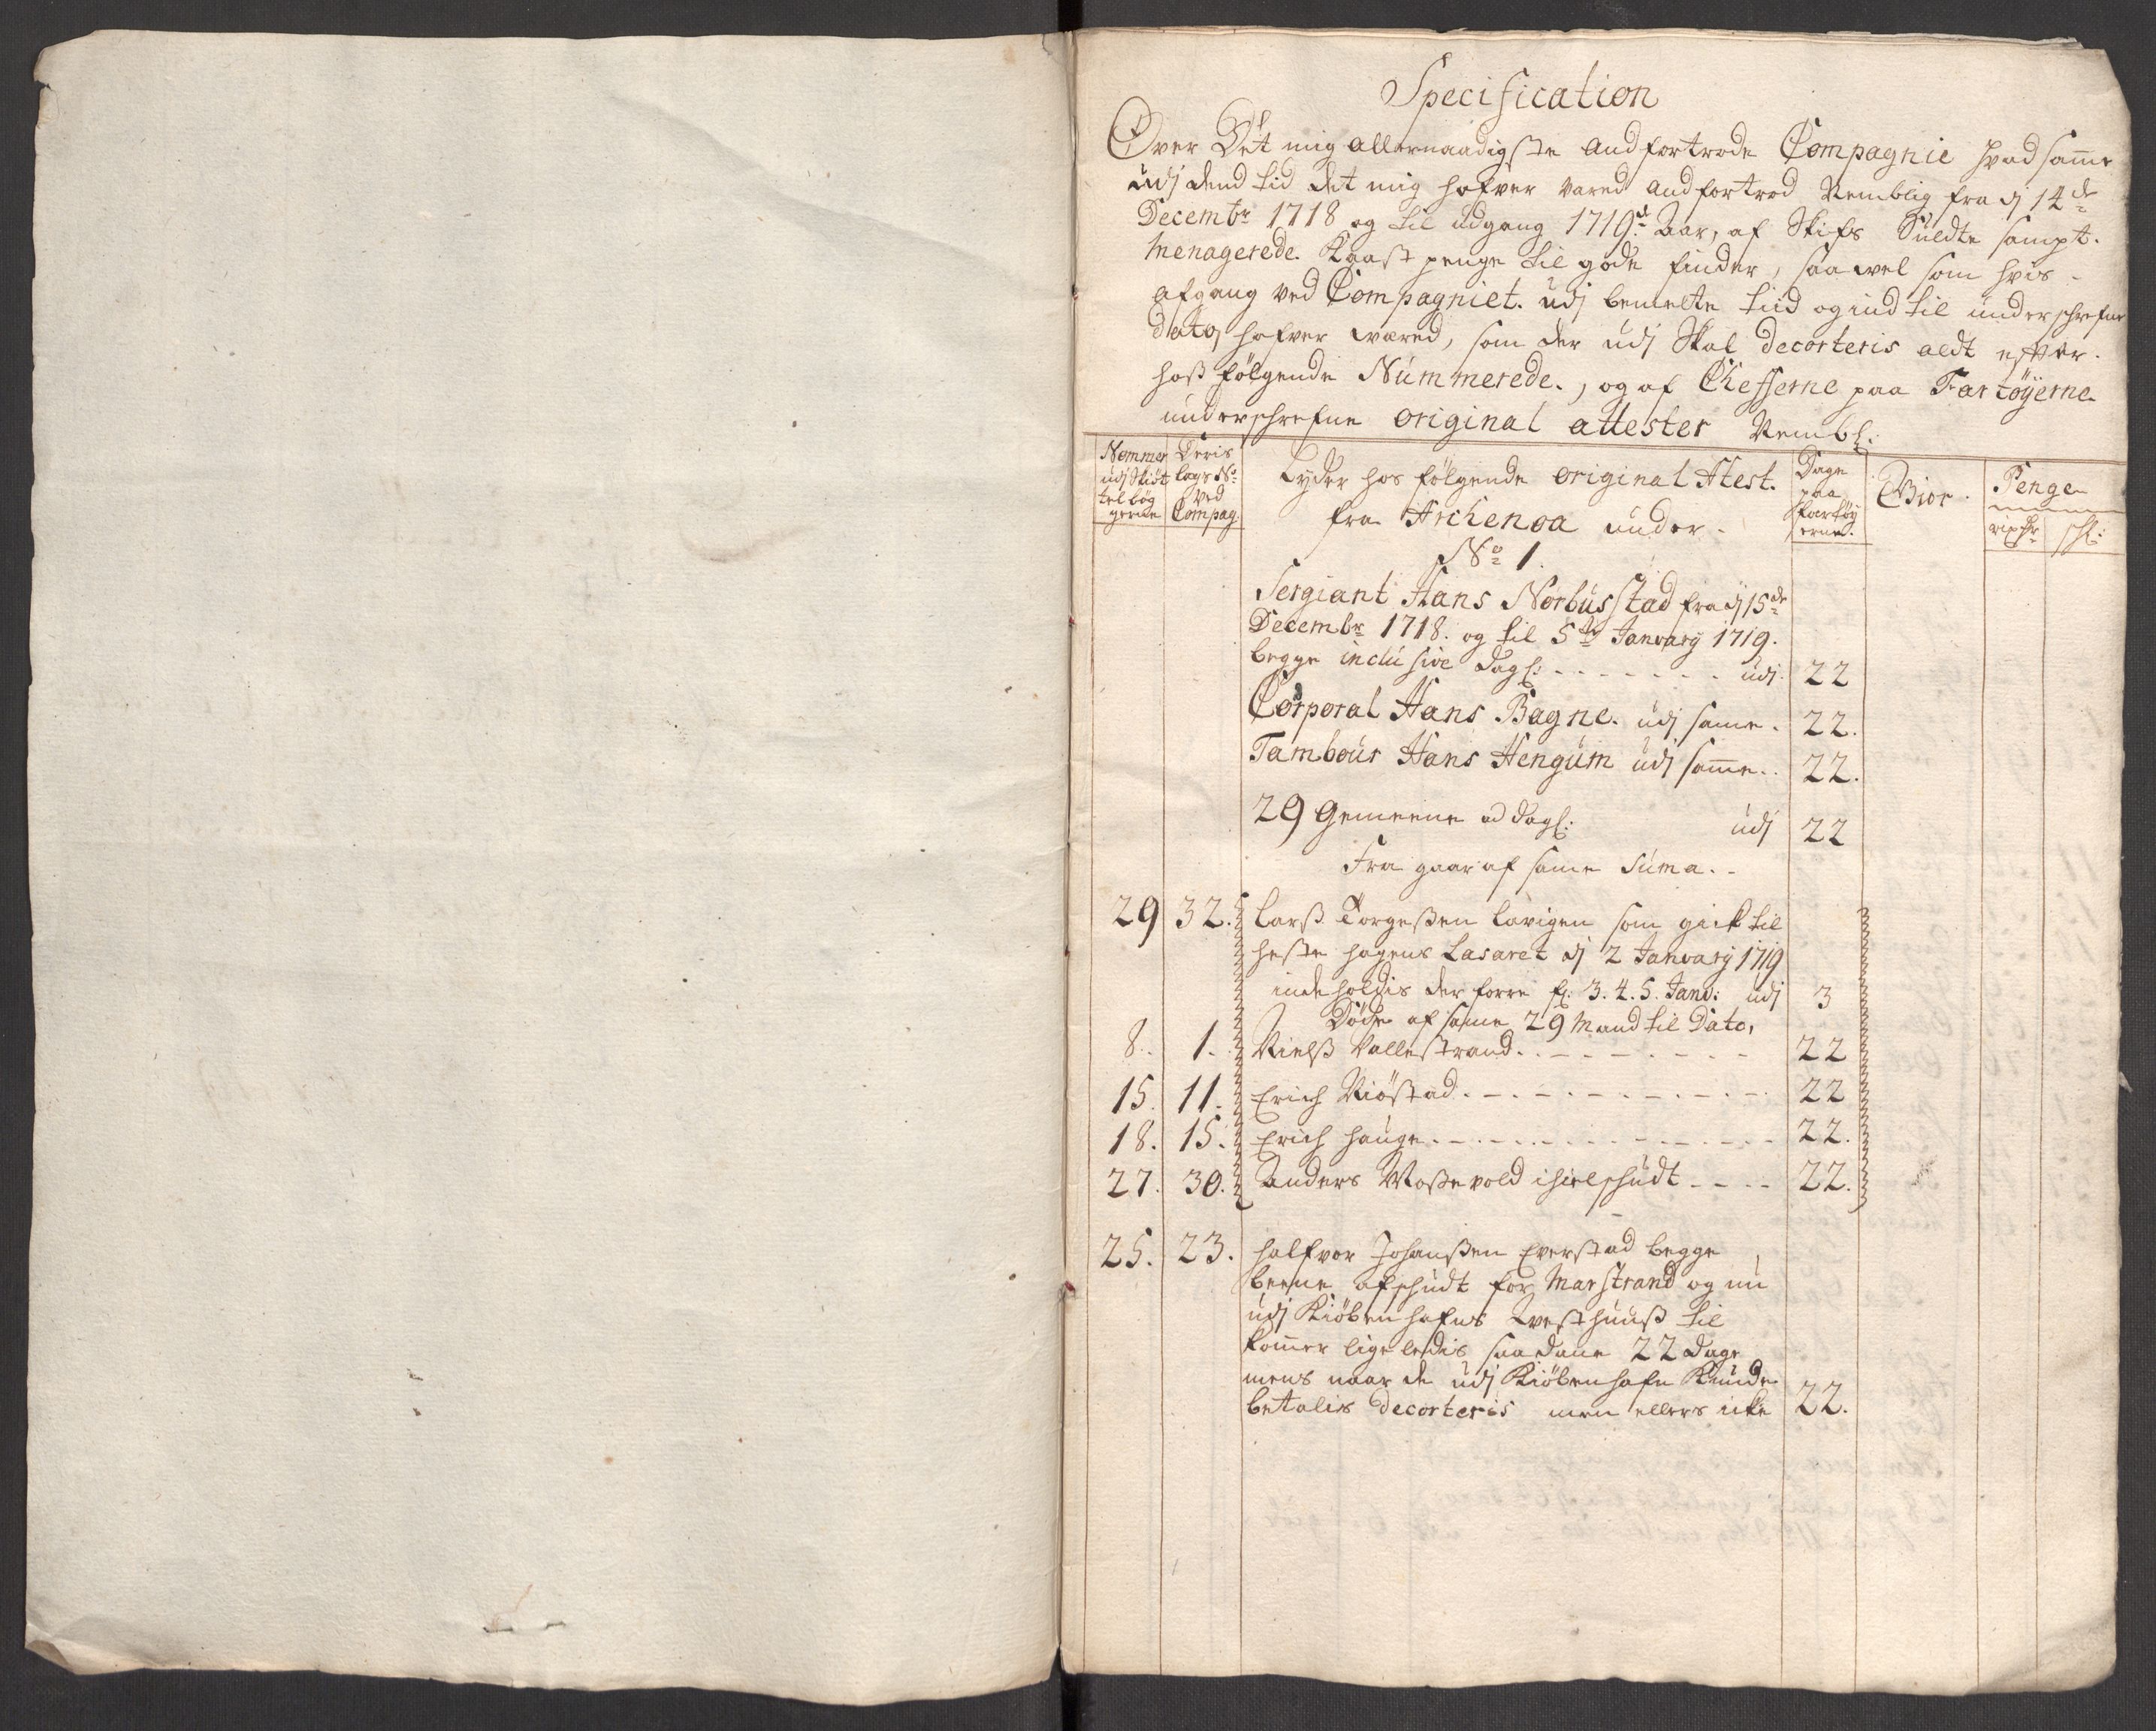 Specification
Over Det mig allernaadigste andfortrode Compagnie hvad same
udj dend tid det mig hafver vared andfortrod Nemblig fra dj 14de
Decembr 1718 og til udgang 1719de Aar, af Skifs Suldte sampt.
menagerede. Kaast penge til gode finder, saa wel som hvis
afgang ved Compagniet. udj bemelte tiid og ind til underschrefne
dato hafver wared, som der udj Skal decorteris aldt efter.
hoß følgende Nummerede., og af Chefferne paa Fartøyerne
underschrefne original attester Nembl:
Nommer udj Skiøt tel bøg gerne
Deris lags No ved Compag.
Lyder hos følgende original Atest.
fra Archenoa under
No 1.
Dage paa fartøy erne.
Bior.
Penge
rixdr
schl:
Sergiant Hans Norbusstad fra dj 15de
Decembr 1718. og til 5te January 1719.
begge inclusive Dagl: udj 22
Corporal Hans Bagne. udj same. 22.
Tambour Hans Hengum udj same.. 22.
29 gemeene ad Dagl: udj 22
Fra gaar af same Suma.
29 32. Larß Torgeßen Lavigen som gick til
heste hagens Lasaret dj 2 January 1719
inde holdis der forre fr. 3. 4. 5. Janu: udj 3
Døde af same 29 Mand til Dato,
8. 1. Nielß Vallestrand. 22
15. 11. Erich Niøstad. 22
18. 15. Erich hauge. 22.
27. 30. Anders Moße vold ihielschudt 22.
25. 23. halfvor Johanßen Everstad begge
beene afschudt for Marstrand og nu
udj Kiøbenhafns Qvesthuuß til
komer lige ledis saadane 22 Dage
mens naar de udj Kiøbenhafn Kunde
betalis decorteris men ellers icke 22.